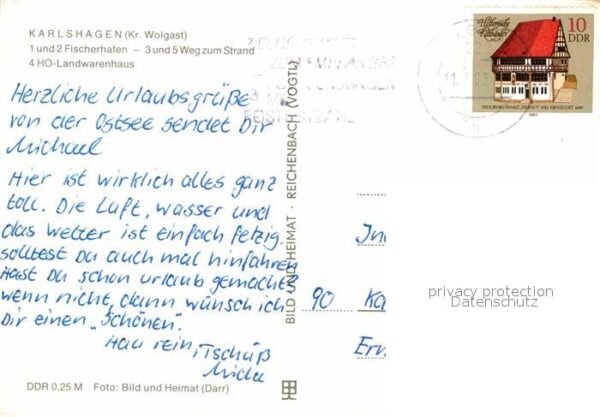 KARLSHAGEN (Kr. Wolgast)
1 und 2 Fischerhafen – 3 und 5 Weg zum Strand
4 HO-Landwarenhaus
Herzliche Urlaubsgrüße
von der Ostsee sendet Dir
Michael
Hier ist wirklich alles ganz
toll. Die Luft, Wasser und
das Wetter ist einfach fetzig.
Solltest Du auch mal hinfahren
Hast Du schon Urlaub gemacht?
wenn nicht, dann wünsch ich
Dir einen „Schönen".
Hau rein, Tschüß
Micha
DDR 0,25 M Foto: Bild und Heimat (Darr)
BILD UND HEIMAT · REICHENBACH (VOGTL)
Historische Rathäuser
10
DDR
1983
90 Ka
privacy protection
Datenschutz